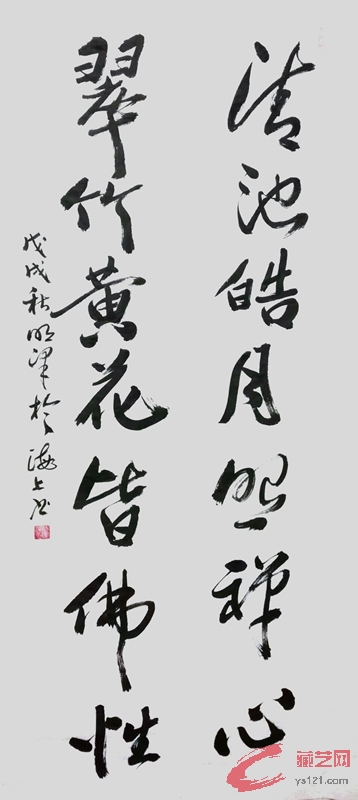 清池皓月照禅心
翠竹黄花皆佛性
戊戌秋明泽於海上书
藏艺网
ys121.com